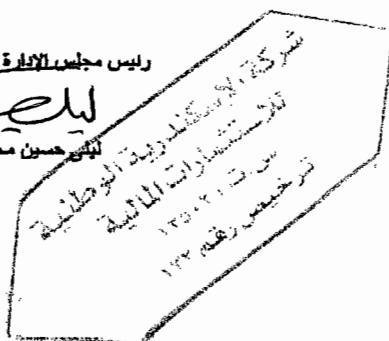 رئيس مجلس الإدارة
ليلى حسين
شركة الاسكندرية الوطنية
للاستثمارات المالية
س.ت
ترخيص رقم ١٣٢